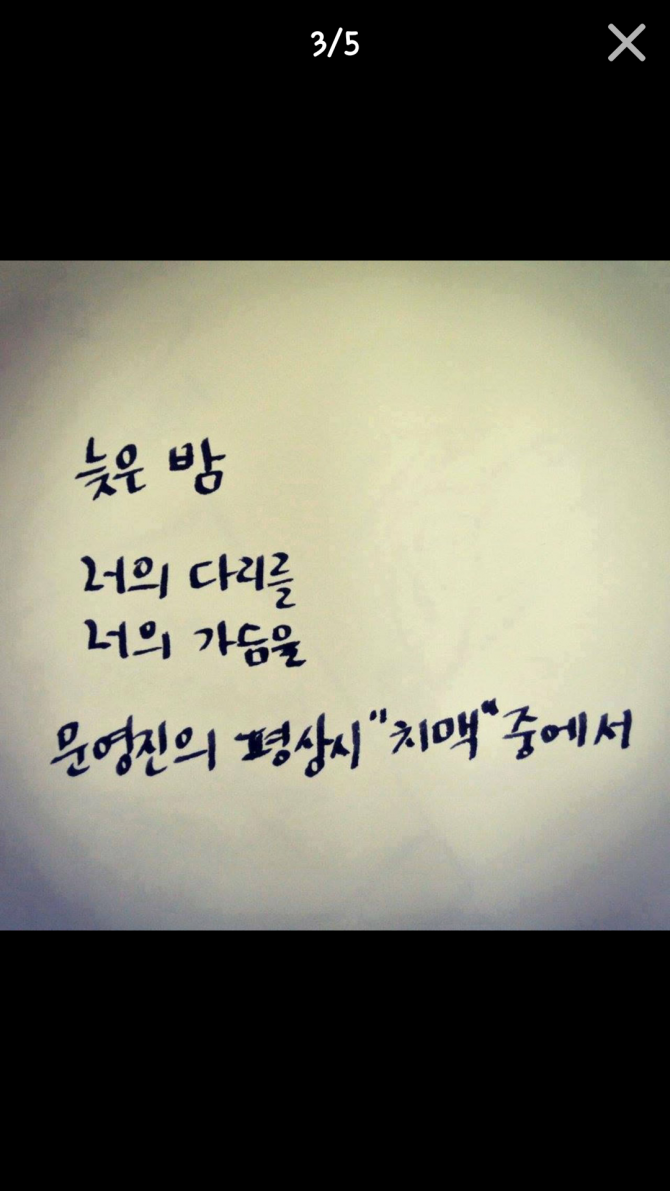 3/5
늦은 밤
너의 다리를
너의 가슴을
문영진의 평상시 "치맥" 중에서